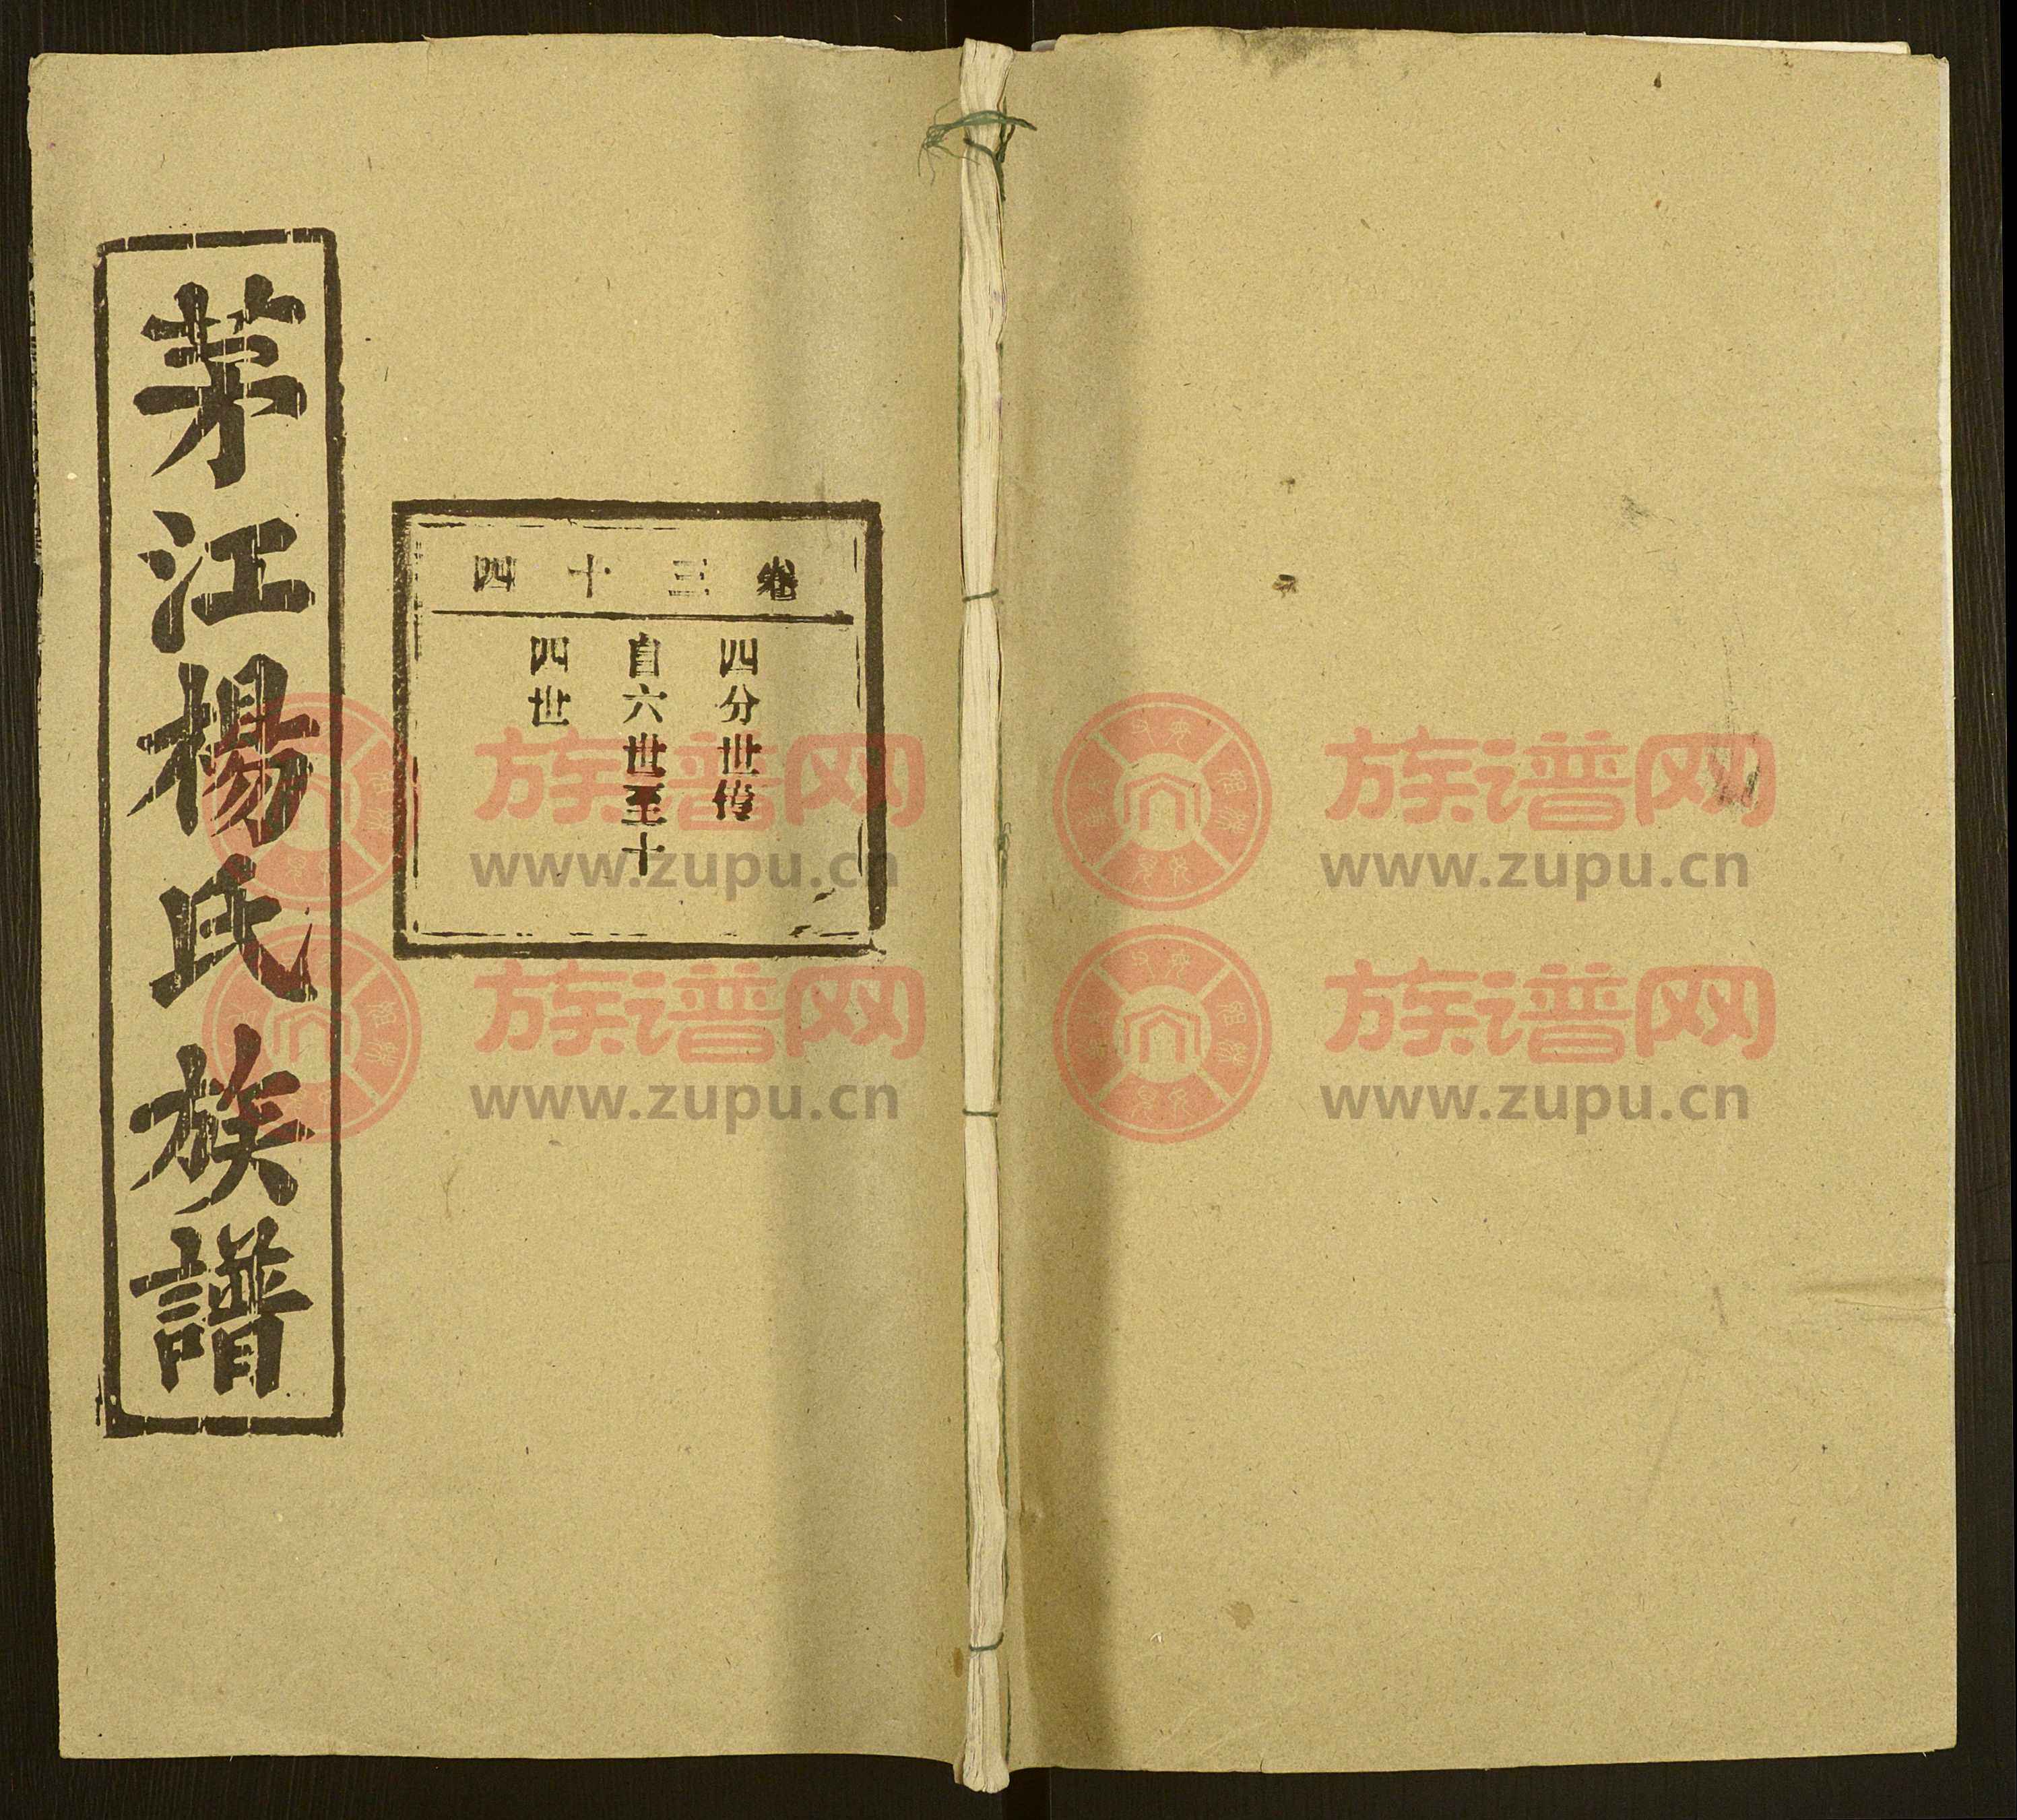 茅江楊氏族譜
卷三十四
四分世传
自六世至十
四世
族谱网
www.zupu.cn
族谱网
www.zupu.cn
族谱网
www.zupu.cn
族谱网
www.zupu.cn